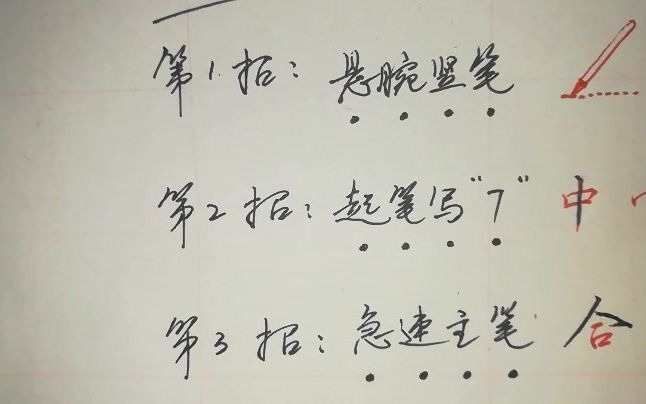 第1招：悬腕竖笔
第2招：起笔写"7" 中
第3招：急速主笔 合